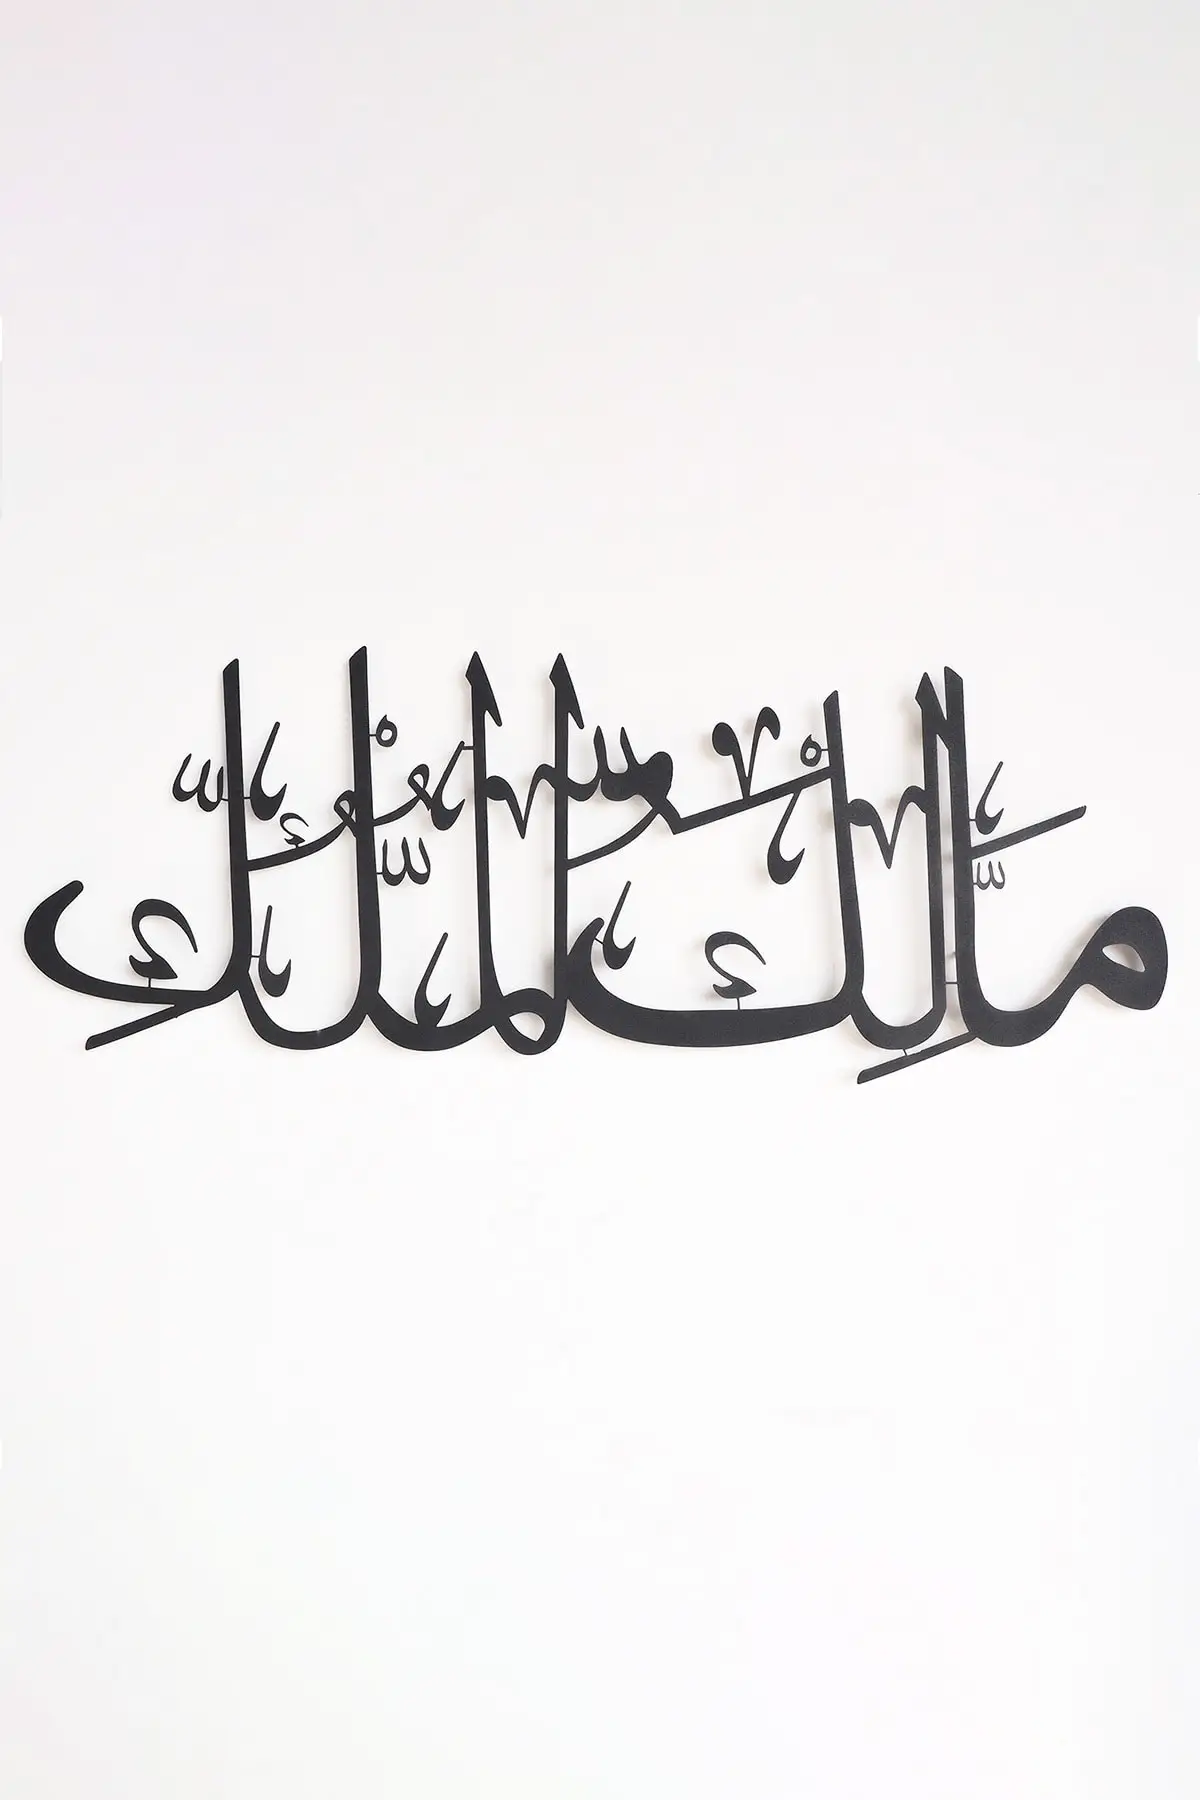 مَالِكُ المُلْكِ